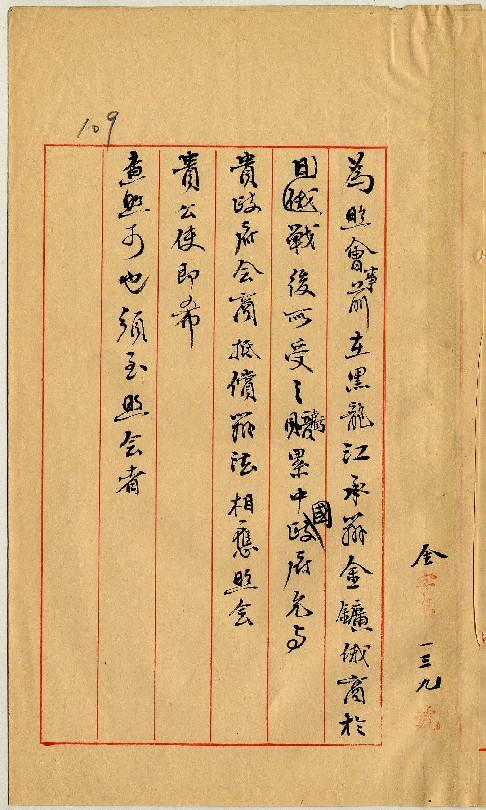 金字第一三九號
為照會事前在黑龍江承辦金鑛俄商於
日俄戰後所受之虧累中國政府允与
貴政府会商抵償辦法相應照会
貴公使即希
查照可也須至照会者
109